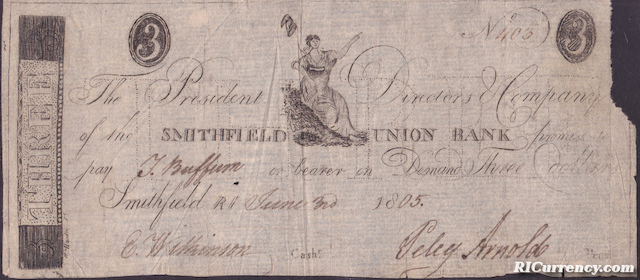 3
No 405
3
THREE
The President Directors & Company
of the SMITHFIELD UNION BANK promise to
pay T. Buffum or bearer on Demand Three dollars
Smithfield RI June 3rd 1805.
C. Wilkinson Cashr. Peleg Arnold Presdt
RICurrency.com